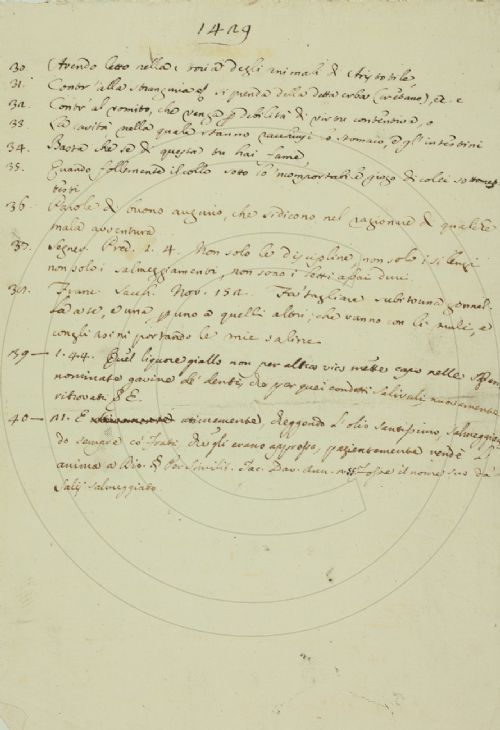 1429
30. Avendo letto nella storia degli animali di Aristotile
31. Contr' alla stranguria si prenda della detta erba (cretano), &c. e
32. Contr' al vomito, che venga p debilità di virtù contentiva, o
33. La cavità nella quale stanno racchiusi lo stomaco, e gl' intestini
34. Basta che se di questa tu hai fame
35. Quando follemente il collo sotto lo 'ncomportabile giogo di colei sottomettesti
36. Parole di buono augurio, che si dicono nel ragionare di qualche
mala avventura
37. Segner. Pred. 1. 4. Non solo le discipline, non solo i silenzi
non solo i salmeggiamenti, non sono i letti assai duri
38. Franc. Sacch. Nov. 152. Fa' tagliare subito una gonnel-
la a se, e una p uno a quelli altri, che vanno con li muli, e
cogli asini portando le mie saline
39 — 1. 44. Quel liquore giallo non per altra via mette capo nelle
nominate gavine de' denti, che per quei condotti salivali nuovamente
ritrovati. & E
40 — 21. E ultimamente, chieggendo l' olio santissimo, salmeggian-
do sempre co' Frati che gli erano appresso, pazientemente rendè l'
anima a Dio. & Per Similit. Dav. Ann. Tosse il nome suo da'
Salij salmeggiato.